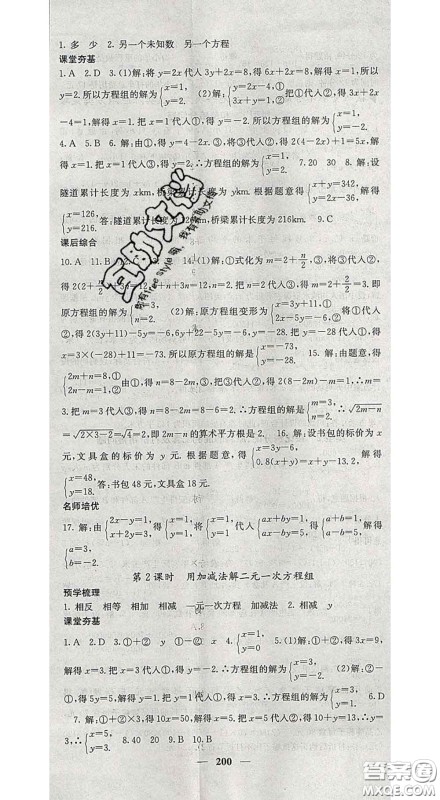 1. 多 少 2. 另一个未知数 另一个方程
课堂夯基
1. A 2. D 3. (1)解:将 y=2x 代入 3y+2x=8,得 6x+2x=8,解得 x=1,所以
y=2. 所以方程组的解为{x=1, y=2. (2)解:{y=2x-4,① 3x+y=1,② 把①代入②,得 3x+2x
-4=1,解得 x=1. 把 x=1 代入①,得 y=-2. ∴方程组的解为{x=1, y=-2.
4. A 5. B 6. 解:由①,得 y=4-2x. ③,将③代入②,得 2(4-2x)+1=5x,解
得 x=1. 把 x=1 代入③,得 y=2. ∴方程组的解为{x=1, y=2. 7. 20 30 8. 解:设
隧道累计长度为 xkm,桥梁累计长度为 ykm. 根据题意得{x+y=342, 2x=y+36. 解得
{x=126, y=216. 答:隧道累计长度为 126km,桥梁累计长度为 216km. 9. C
课后综合
10. A 11. B 12. 14. (1)解:①式化为 m=2+n/2,③将③代入②,
得 2(2+ +3n=12,得 n=2,将 n=2 代入③,得 m=2+2/2=3. 即
原方程组的解为 n=2. (2)解:原方程组变形为{x=3y+11,① 2x-5y=-6,②将①代入
②,得 2(3y+11)-5y=-6,6y+22-5y=-6,y=-28. 把 y=-28 代入①,得
x=3×(-28)+11=-73. 所以原方程组的解是{x=-73, y=-28. 15. 解:由题意,得
{2m+n=8,① 2n-m=1,② 由①,得 n=8-2m,③,把③代入②,得 2(8-2m)-m=1,∴m=
3. 把 m=3 代入③,得 n=8-6=2. ∴方程组的解是{m=3, n=2. ∴√2m-n
=√2×3-2=√4=2,即 2m-n 的算术平方根是 2. 16. 解:设书包的标价为 x
元,文具盒的标价为 y 元. 根据题意,得{x=3y-6, 0.8(x+y)=x+y-13.2, 解得
{x=48, y=18. 答:书包 48 元,文具盒 18 元.
名师培优
17. 解:由{2x-y=1, x+2y=3, 得{x=1, y=1, 将{x=1, y=1 代入{ax+by=1, ax-by=5, 得{a+b=1, a-b=5, 解得
{a=3, b=-2.
第 2 课时 用加减法解二元一次方程组
预学梳理
1. 相反 相等 相加 相减 一元一次方程 加减法 2. 相减 y
课堂夯基
1. A 2. D 3. ①+② y ①-② x 4. {x=1, y=0 5. (1)解:①+②,得 3x=9,
解得 x=3. 把 x=3 代入①,得 y=-2. ∴方程组的解为{x=3, y=-2. (2)解:②-
①,得 5y=5,解得 y=1. 把 y=1 代入①,得 x=1. ∴方程组的解为{x=1, y=1. 6. D
7. 解:①+②×3,得 10x=50,解得 x=5. 把 x=5 代入②,得 10+y=13,∴y=
3,∴{x=5, y=3. 8. 40 20 9. B 10. B
200
答案圈
MXQE.COM